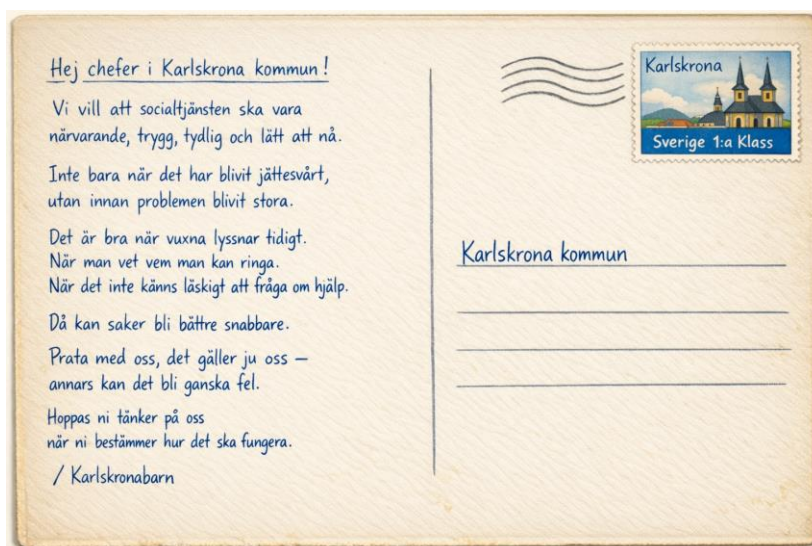 Hej chefer i Karlskrona kommun!
Vi vill att socialtjänsten ska vara
närvarande, trygg, tydlig och lätt att nå.
Inte bara när det har blivit jättesvårt,
utan innan problemen blivit stora.
Det är bra när vuxna lyssnar tidigt.
När man vet vem man kan ringa.
När det inte känns läskigt att fråga om hjälp.
Då kan saker bli bättre snabbare.
Prata med oss, det gäller ju oss –
annars kan det bli ganska fel.
Hoppas ni tänker på oss
när ni bestämmer hur det ska fungera.
/ Karlskronabarn
Karlskrona
Sverige 1:a Klass
Karlskrona kommun